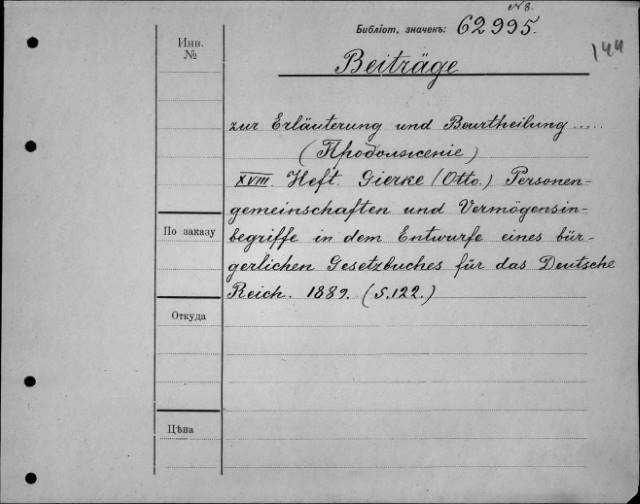 № 8.
Библіот. значекъ: 62995.
144
Инв.
№
Beiträge
zur Erläuterung und Beurtheilung.....
(Продолженіе)
XVIII. Heft. Gierke (Otto.) Personen-
gemeinschaften und Vermögensin-
По заказу
begriffe in dem Entwurfe eines bür-
gerlichen Gesetzbuches für das Deutsche
Reich. 1889. (S.122.)
Откуда
Цѣна